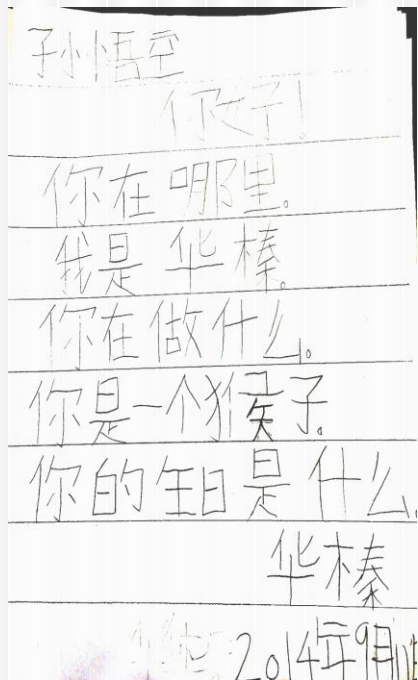 孙悟空
你好!
你在哪里。
我是华榛。
你在做什么。
你是一个猴子。
你的生日是什么。
华榛
2014年9月11